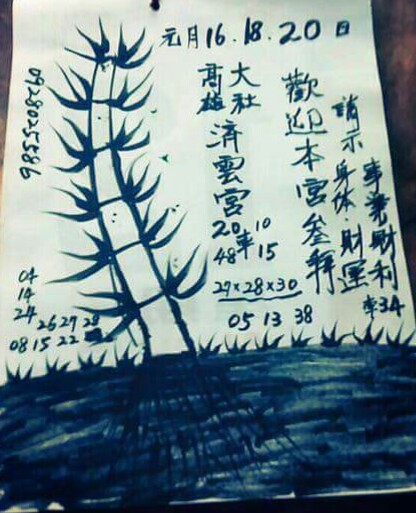 元月16.18.20日
事業財利
請示身体.財運
歡迎本宮參拜
大社
高雄
濟雲宮
20車10
48 15
27×28×30
05 13 38
車34
0928025586
04
14
24
26 27 28
08 15 22